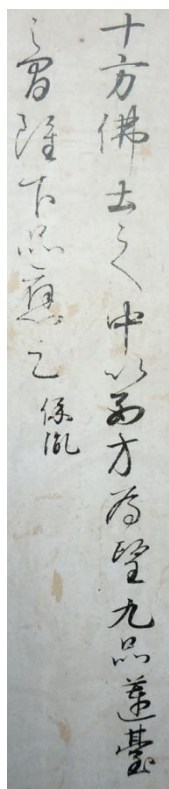 十方佛土之中以西方為望九品蓮臺
之間雖下品應足 保胤